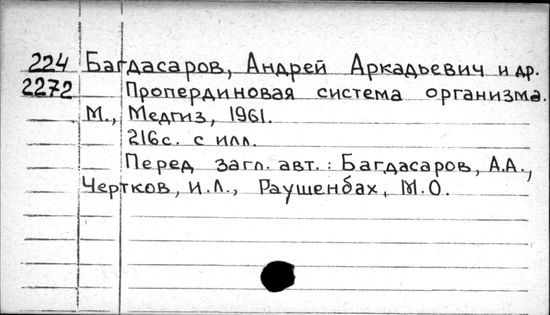 224 Багдасаров, Андрей Аркадьевич и др.
2272 Пропердиновая система организма.
М., Медгиз, 1961.
216с. с илл.
Перед загл. авт.: Багдасаров, А.А.,
Чертков, И.Л., Раушенбах, М.О.